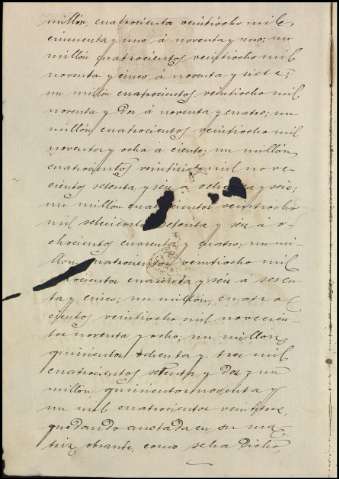 millón, cuatrocientos veintiocho mil
cincuenta y uno á noventa y uno; un
millón cuatrocientos veintiocho mil
noventa y cinco á noventa y siete;
un millón cuatrocientos veintiocho mil
noventa y dos á noventa y cuatro; un
millón cuatrocientos veintiocho mil
noventa y ocho á ciento; un millón
cuatrocientos veintiocho mil nove-
cientos setenta y seis á ochenta y seis;
un millón cuatrocientos veintiocho
mil setenta y seis á o-
chocientos cuarenta y cuatro; un mi-
llón cuatrocientos veintiocho mil
cuarenta y seis á sesen-
ta y cinco; un millón, cuatro-
cientos veintiocho mil novecien-
tos noventa y ocho; un millón
quinientos ochenta y tres mil
cuatrocientos setenta y dos y un
millón quinientos noventa y
un mil cuatrocientos veintitres,
quedando anotada en su ma-
triz obrante, como se ha dicho